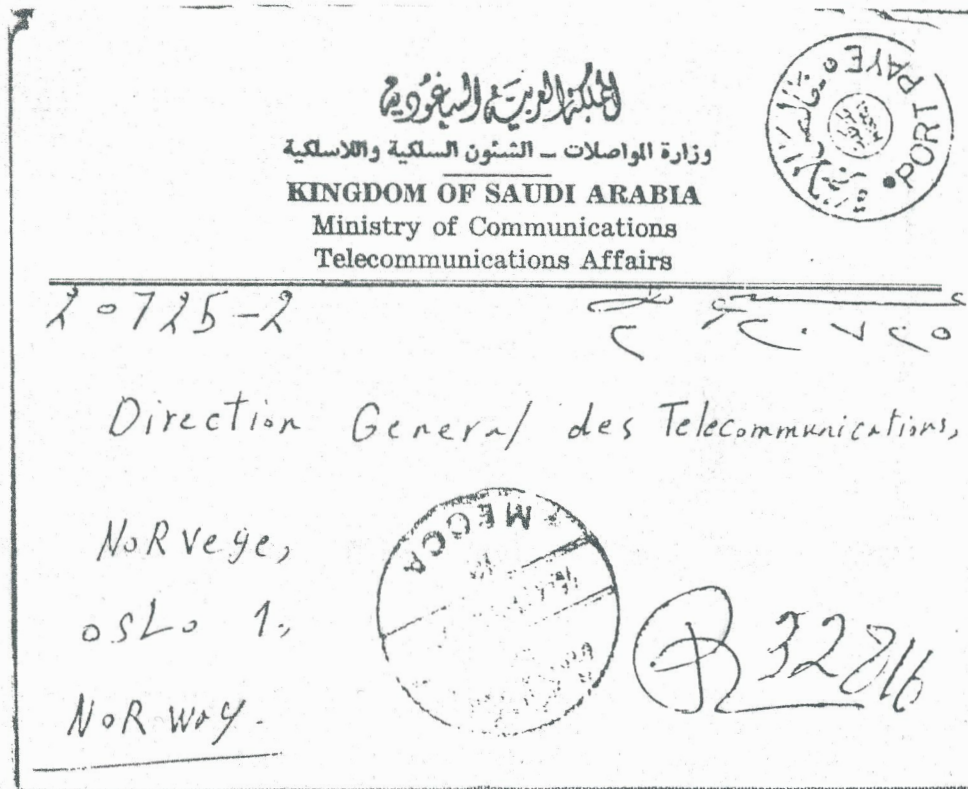 المملكة العربية السعودية
وزارة المواصلات – الشئون السلكية واللاسلكية
KINGDOM OF SAUDI ARABIA
Ministry of Communications
Telecommunications Affairs
PORT PAYE
20725-2
٢٠٧٢٥
٢
Direction General des Telecommunications,
NoRvege,
MECCA
osLo 1,
R 32816
NoRway.